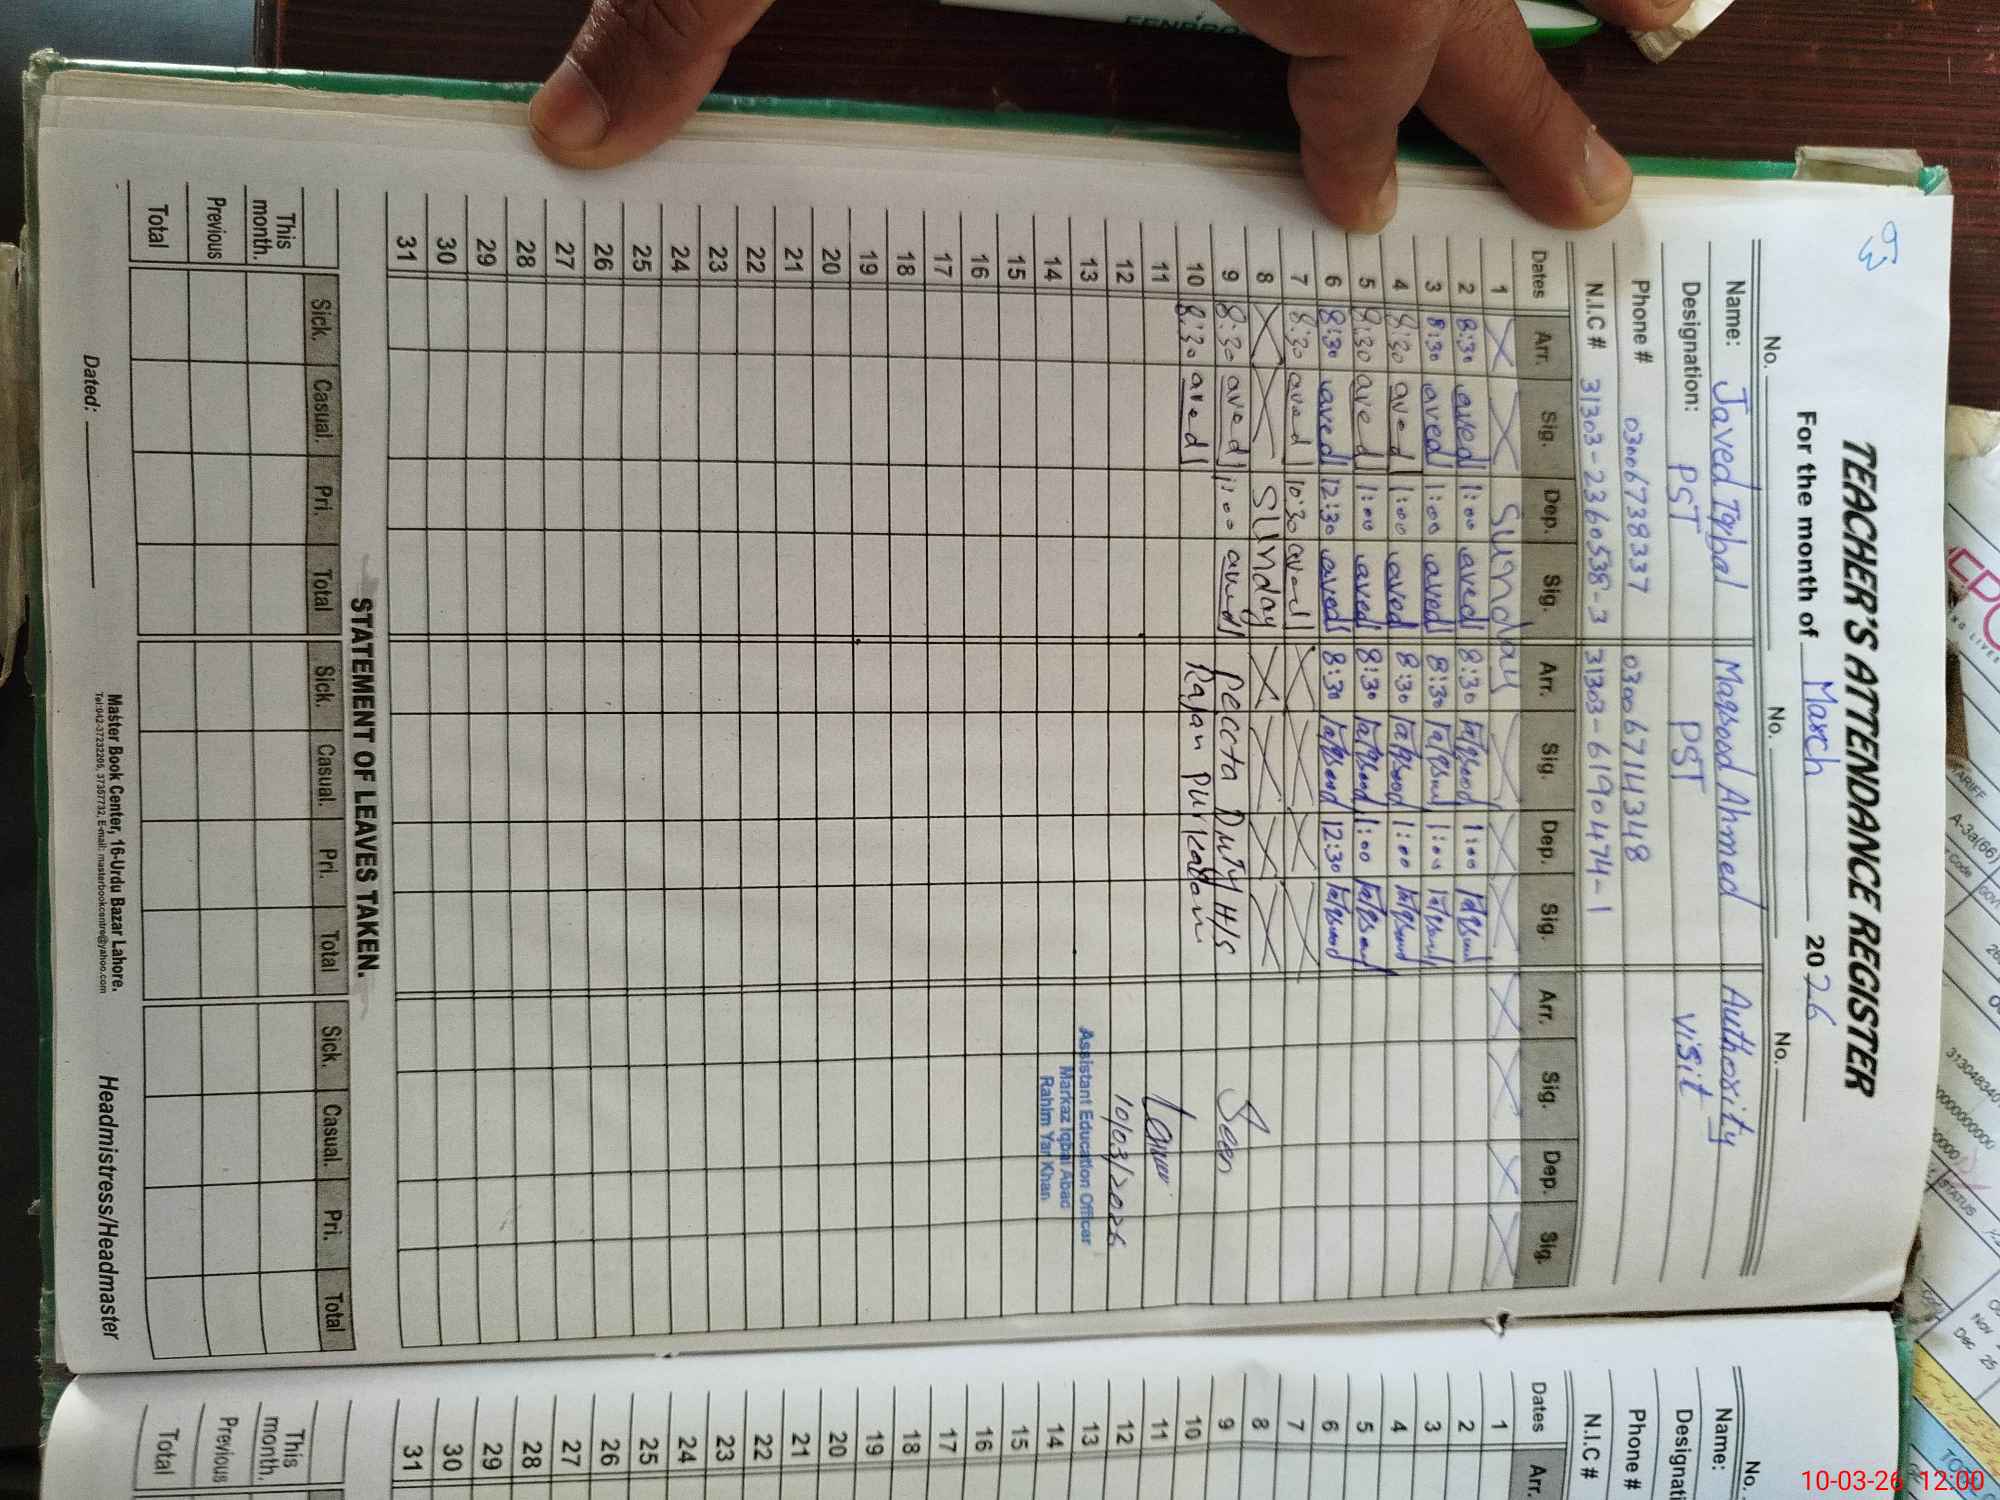 TEACHER'S ATTENDANCE REGISTER
For the month of March 2026
No. No. No.
Name: Javed Iqbal Maqsood Ahmed Authority
Designation: PST PST visit
Phone # 03006738337 03006714348
N.I.C # 31303-2360538-3 31303-6190474-1
Dates Arr. Sig. Dep. Sig. Arr. Sig. Dep. Sig. Arr. Sig. Dep. Sig.
1 Sunday
2 8:30 aved 1:00 aved 8:30 Maqsood 1:00 Maqsood
3 8:30 aved 1:00 aved 8:30 Maqsood 1:00 Maqsood
4 8:30 aved 1:00 aved 8:30 Maqsood 1:00 Maqsood
5 8:30 aved 1:00 aved 8:30 Maqsood 1:00 Maqsood
6 8:30 aved 12:30 aved 8:30 Maqsood 12:30 Maqsood
7 8:30 aved 10:30 aved
8 Sunday
9 8:30 aved 1:00 aved Peccta Duty H/S Seen
10 8:30 aved Rajan Pur Kadan
11
12 10/03/2026
13 Assistant Education Officer
Markaz Iqbal Abad
14 Rahim Yar Khan
15
16
17
18
19
20
21
22
23
24
25
26
27
28
29
30
31
STATEMENT OF LEAVES TAKEN.
Sick. Casual. Pri. Total Sick. Casual. Pri. Total Sick. Casual. Pri. Total
This month.
Previous
Total
Dated:
Master Book Center, 16-Urdu Bazar Lahore.
Tel:042-37232205, 37357732, E-mail: masterbookcentre@yahoo.com
Headmistress/Headmaster
No.
Name:
Phone #
N.I.C #
Dates Arr.
1
2
3
4
5
6
7
8
9
10
11
12
13
14
15
16
17
18
19
20
21
22
23
24
25
26
27
28
29
30
31
This month.
Previous
Total
A-3a(66)
STATUS
Nov
Dec 25
10-03-26 12:00